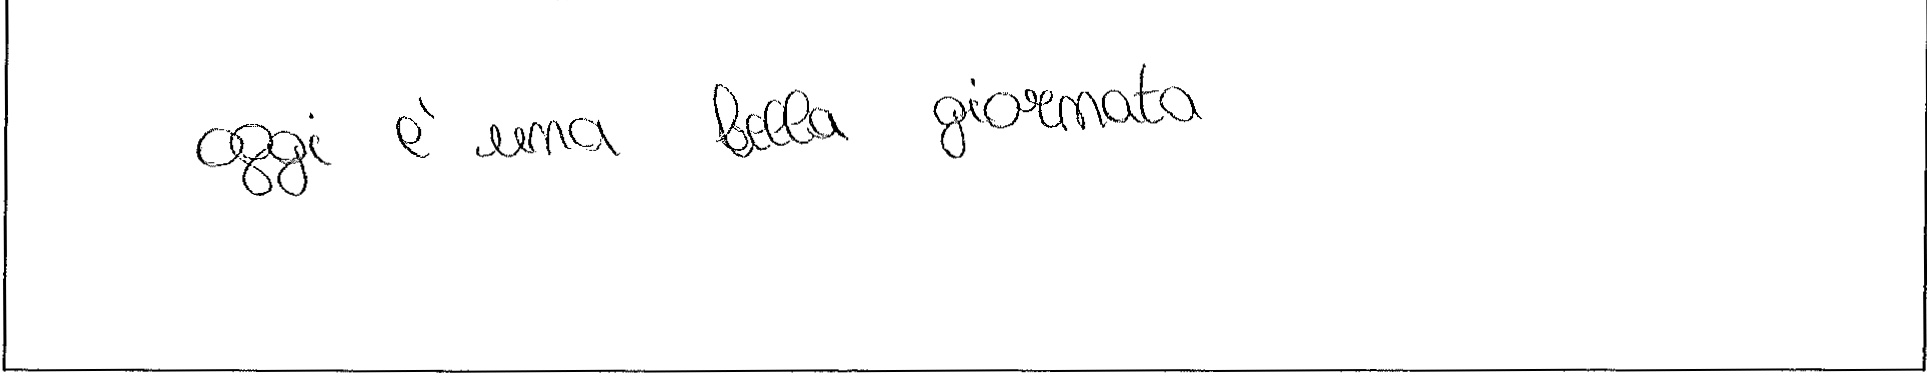 oggi è una bella giornata